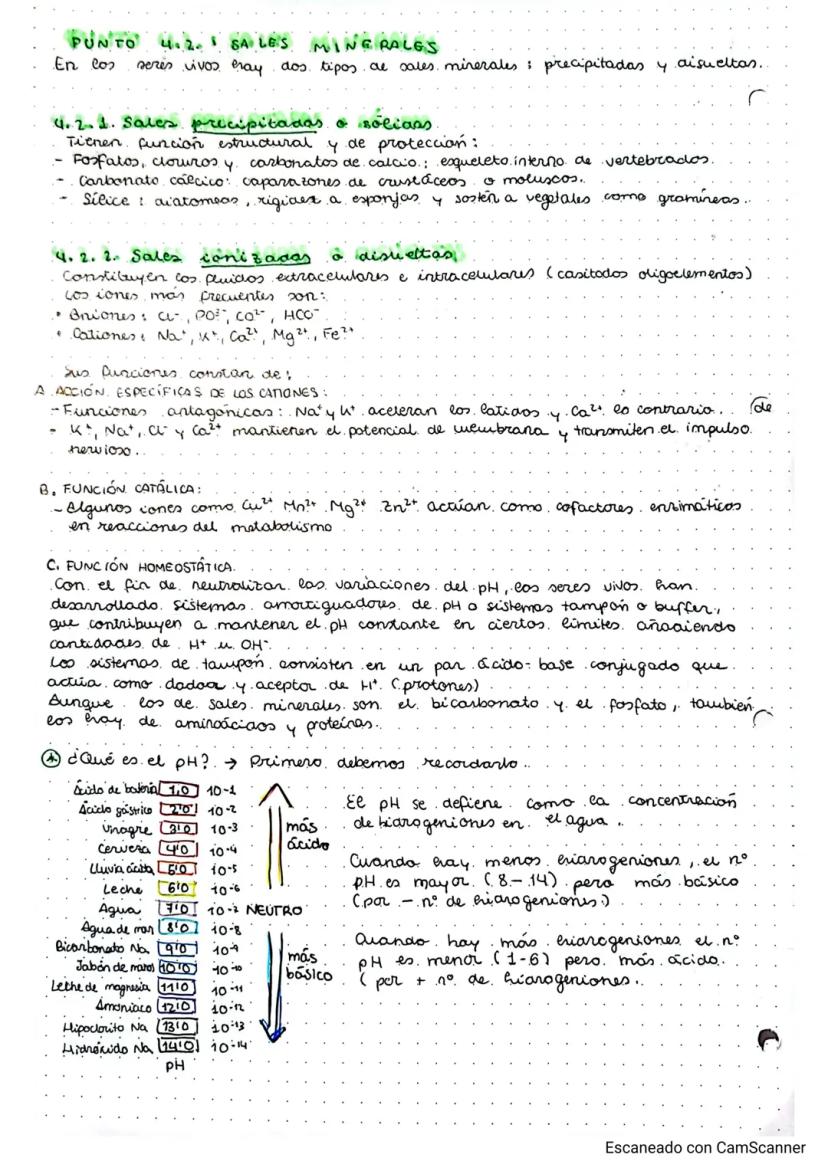 PUNTO 4.2.: SALES MINERALES
En los seres vivos hay dos tipos de sales minerales: precipitadas y disueltas.
4.2.1. Sales precipitadas o sólidas
Tienen función estructural y de protección:
- Fosfatos, clouros y carbonatos de calcio: esqueleto interno de vertebrados.
- Carbonato cálcico: caparazones de crustáceos o moluscos.
- Sílice: diatomeas, rigidez a esponjas y sostén a vegetales como gramíneas.
4.2.2. Sales ionizadas o disueltas
Constituyen los fluidos extracelulares e intracelulares (casitodos oligoelementos)
Los iones más frecuentes son:
• Aniones: Cl⁻, PO₄³⁻, CO²⁻, HCO⁻
• Cationes: Na⁺, K⁺, Ca²⁺, Mg²⁺, Fe²⁺
Sus funciones constan de:
A. ACCIÓN ESPECÍFICAS DE LOS CATIONES:
- Funciones antagónicas: Na⁺ y K⁺ aceleran los latidos y Ca²⁺ lo contrario. (de
- K⁺, Na⁺, Cl⁻ y Ca²⁺ mantienen el potencial de membrana y transmiten el impulso
nervioso.
B. FUNCIÓN CATÁLICA:
- Algunos iones como Cu²⁺ Mn²⁺ Mg²⁺ Zn²⁺ actúan como cofactores enzimáticos
en reacciones del matabolismo
C. FUNCIÓN HOMEOSTÁTICA.
Con el fin de neutralizar las variaciones del pH, los seres vivos han
desarrollado sistemas amortiguadores de pH o sistemas tampón o buffer,
que contribuyen a mantener el pH constante en ciertos límites añadiendo
cantidades de H⁺ u OH⁻.
Los sistemas de tampón consisten en un par ácido-base conjugado que
actúa como dador y aceptor de H⁺ (protones)
Aunque los de sales minerales son el bicarbonato y el fosfato, también
los hay de aminoácidos y proteínas.
¿Qué es el pH? → Primero debemos recordarlo.
Ácido de batería 1,0 10-1
Ácido gástrico 2'0 10-2
Vinagre 3'0 10-3
Cerveza 4'0 10-4
Lluvia ácida 5'0 10-5
Leche 6'0 10-6
Agua 7'0 10-7 NEUTRO
Agua de mar 8'0 10-8
Bicarbonato Na 9'0 10-9
Jabón de manos 10'0 10-10
Leche de magnesia 11'0 10-11
Amoniaco 12'0 10-12
Hipoclorito Na 13'0 10-13
Hidróxido Na 14'0 10-14
pH
más
ácido
más
básico
El pH se defiene como la concentración
de hidrogeniones en el agua.
Cuando hay menos hidrogeniones, el nº
pH es mayor (8-14) pero más básico
(por - nº de hidrogeniones)
Cuando hay más hidrogeniones el nº
pH es menor (1-6) pero más ácido.
(por + nº de hidrogeniones.
Escaneado con CamScanner